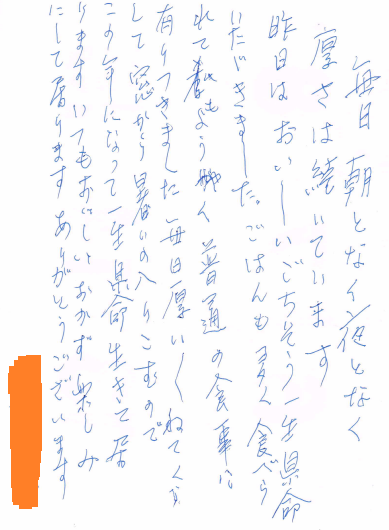 毎日朝となく夜となく
厚さは続いています
昨日はおいしいごちそう一生県命
いただきました。ごはんも多く食べら
れて うやく普通の食事に
有りつきました毎日厚いしねてくら
して窓から暑いの入りこむので
この年になって一生県命生きて居
りますいつもおいしいおかず楽しみ
にして居ります ありがとうございます